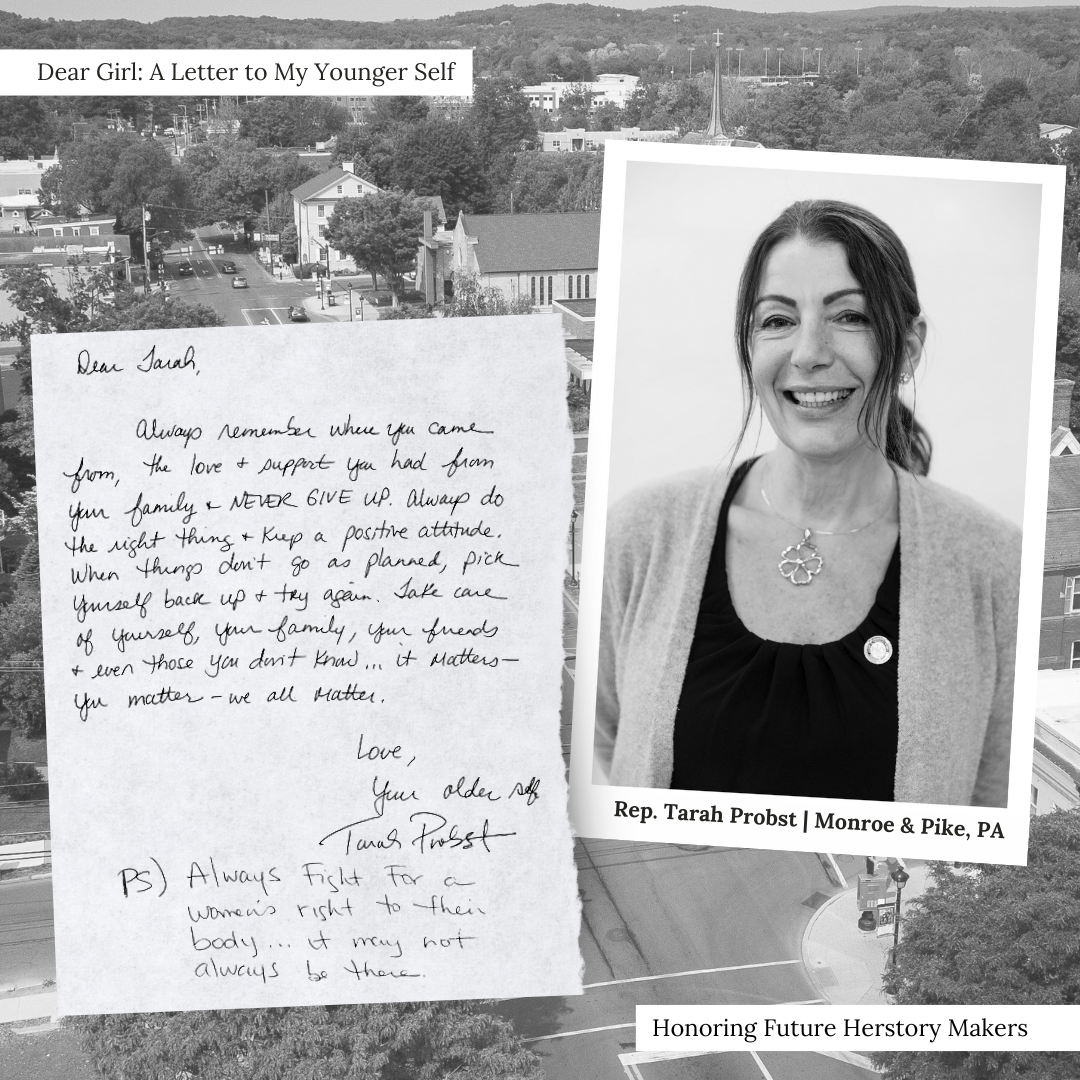 Dear Girl: A Letter to My Younger Self
Dear Tarah,
Always remember where you came
from, the love + support you had from
your family + NEVER GIVE UP. Always do
the right thing + keep a positive attitude.
When things don't go as planned, pick
yourself back up + try again. Take care
of yourself, your family, your friends
+ even those you don't know... it matters—
you matter – we all matter.
Love,
Your older self
Tarah Probst
PS) Always Fight For a
women's right to their
body... it may not
always be there.
Rep. Tarah Probst | Monroe & Pike, PA
Honoring Future Herstory Makers